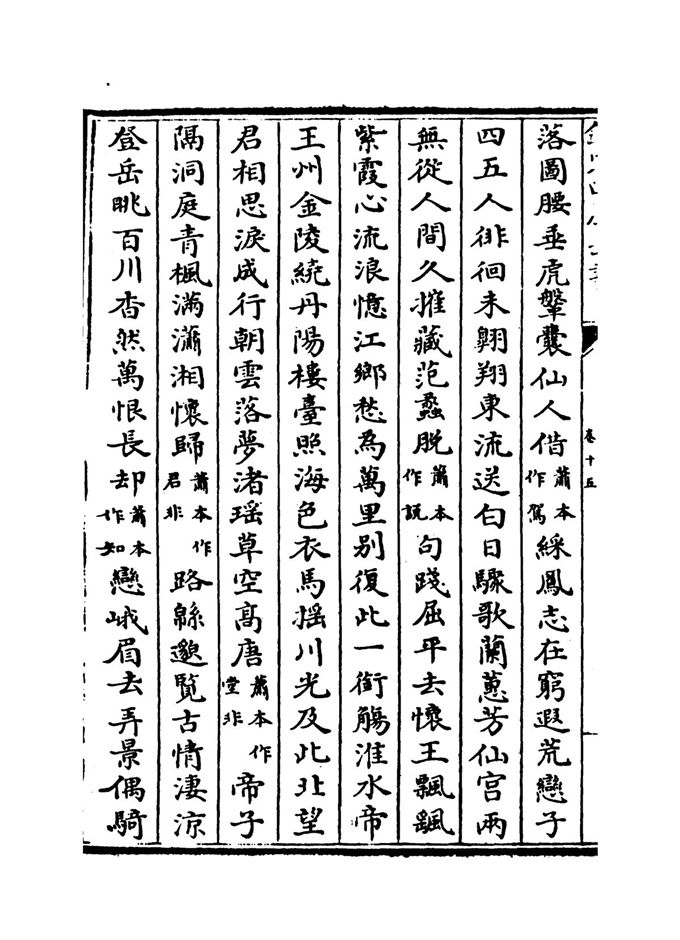 卷十五
落圖腰垂虎鞶囊仙人借蕭本作駕綵鳳志在窮遐荒戀子
四五人徘徊未翺翔東流送白日驟歌蘭蕙芳仙宫兩
無從人間久摧藏范蠡脱蕭本作説句踐屈平去懷王飄飖
紫霞心流浪憶江鄉愁為萬里别復此一銜觴淮水帝
王州金陵繞丹陽樓臺照海色衣馬揺川光及此北望
君相思淚成行朝雲落夢渚瑶草空髙唐蕭本作堂非帝子
隔洞庭青楓滿瀟湘懷歸蕭本作君非路緜邈覽古情淒涼
登岳眺百川杳然萬恨長却蕭本作知戀峨眉去弄景偶騎